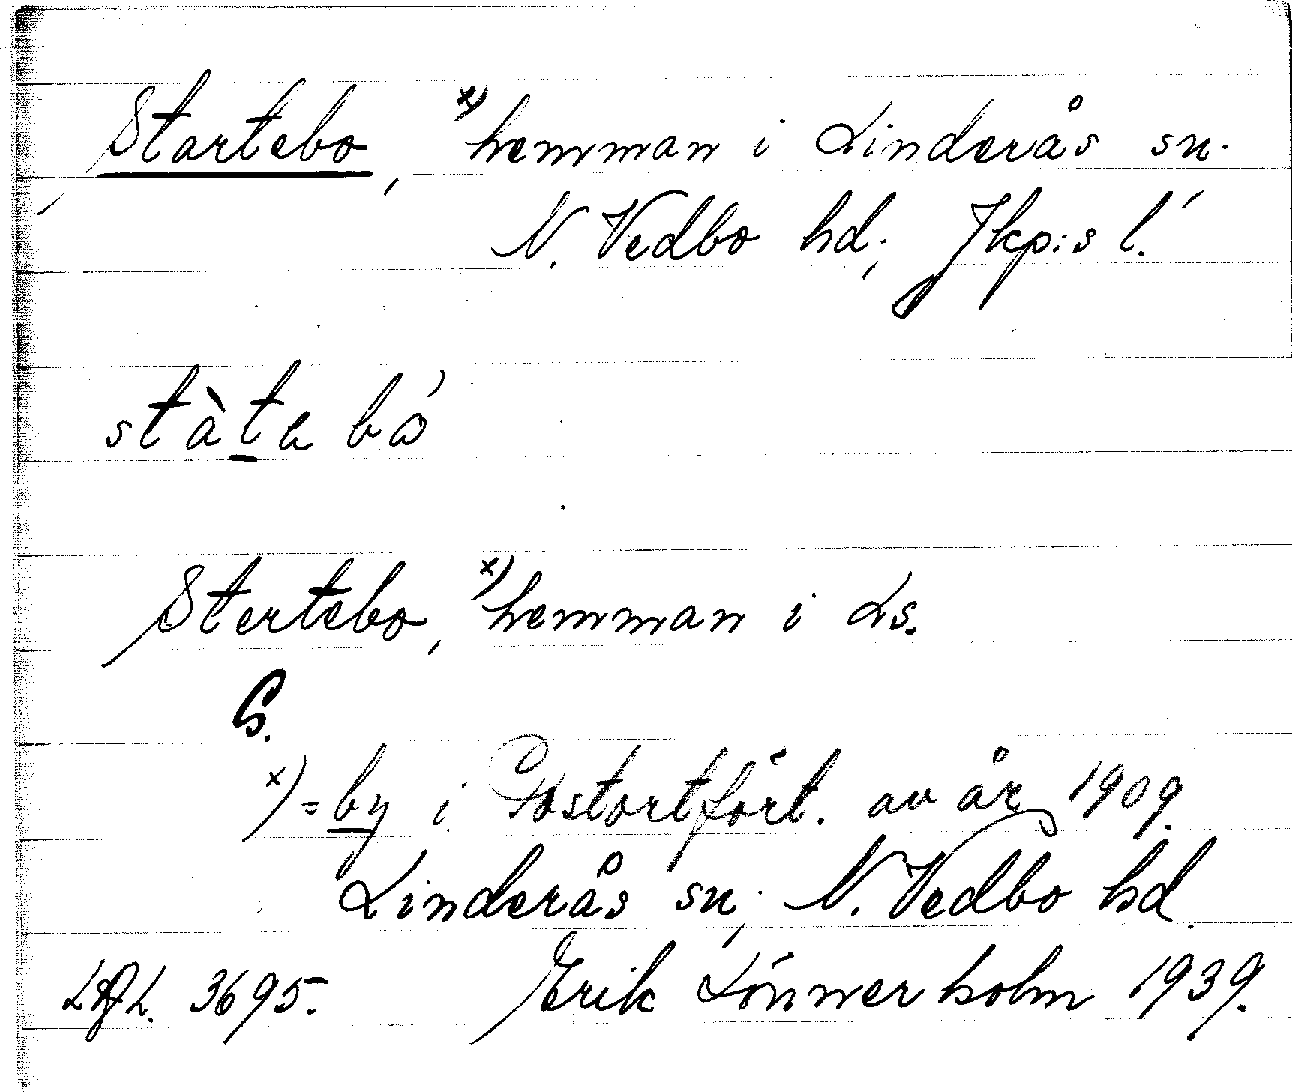 Startebo, x) hemman i Linderås sn.
N. Vedbo hd; Jkp:s l.
stàta bó
Stertebo, x) hemman i Ls.
G.
x) = by i Postortfört. av år 1909.
Linderås sn; N. Vedbo hd.
3695. Erik Lönnerholm 1939.